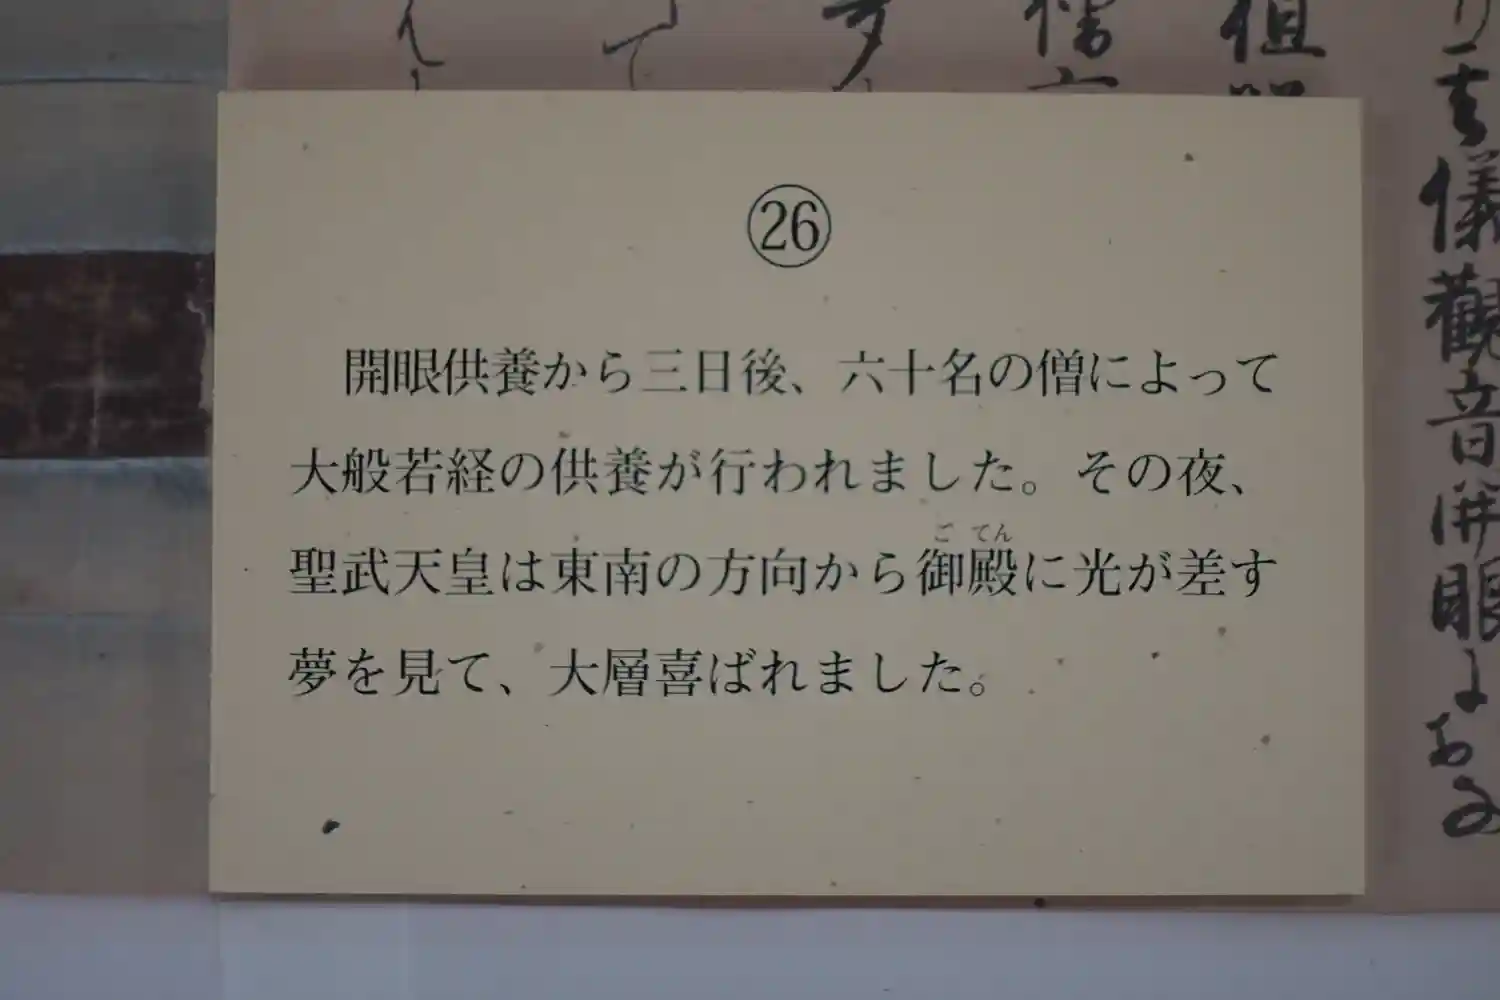 ㉖
開眼供養から三日後、六十名の僧によって
大般若経の供養が行われました。その夜、
ご てん
聖武天皇は東南の方向から御殿に光が差す
夢を見て、大層喜ばれました。
儀觀音開眼